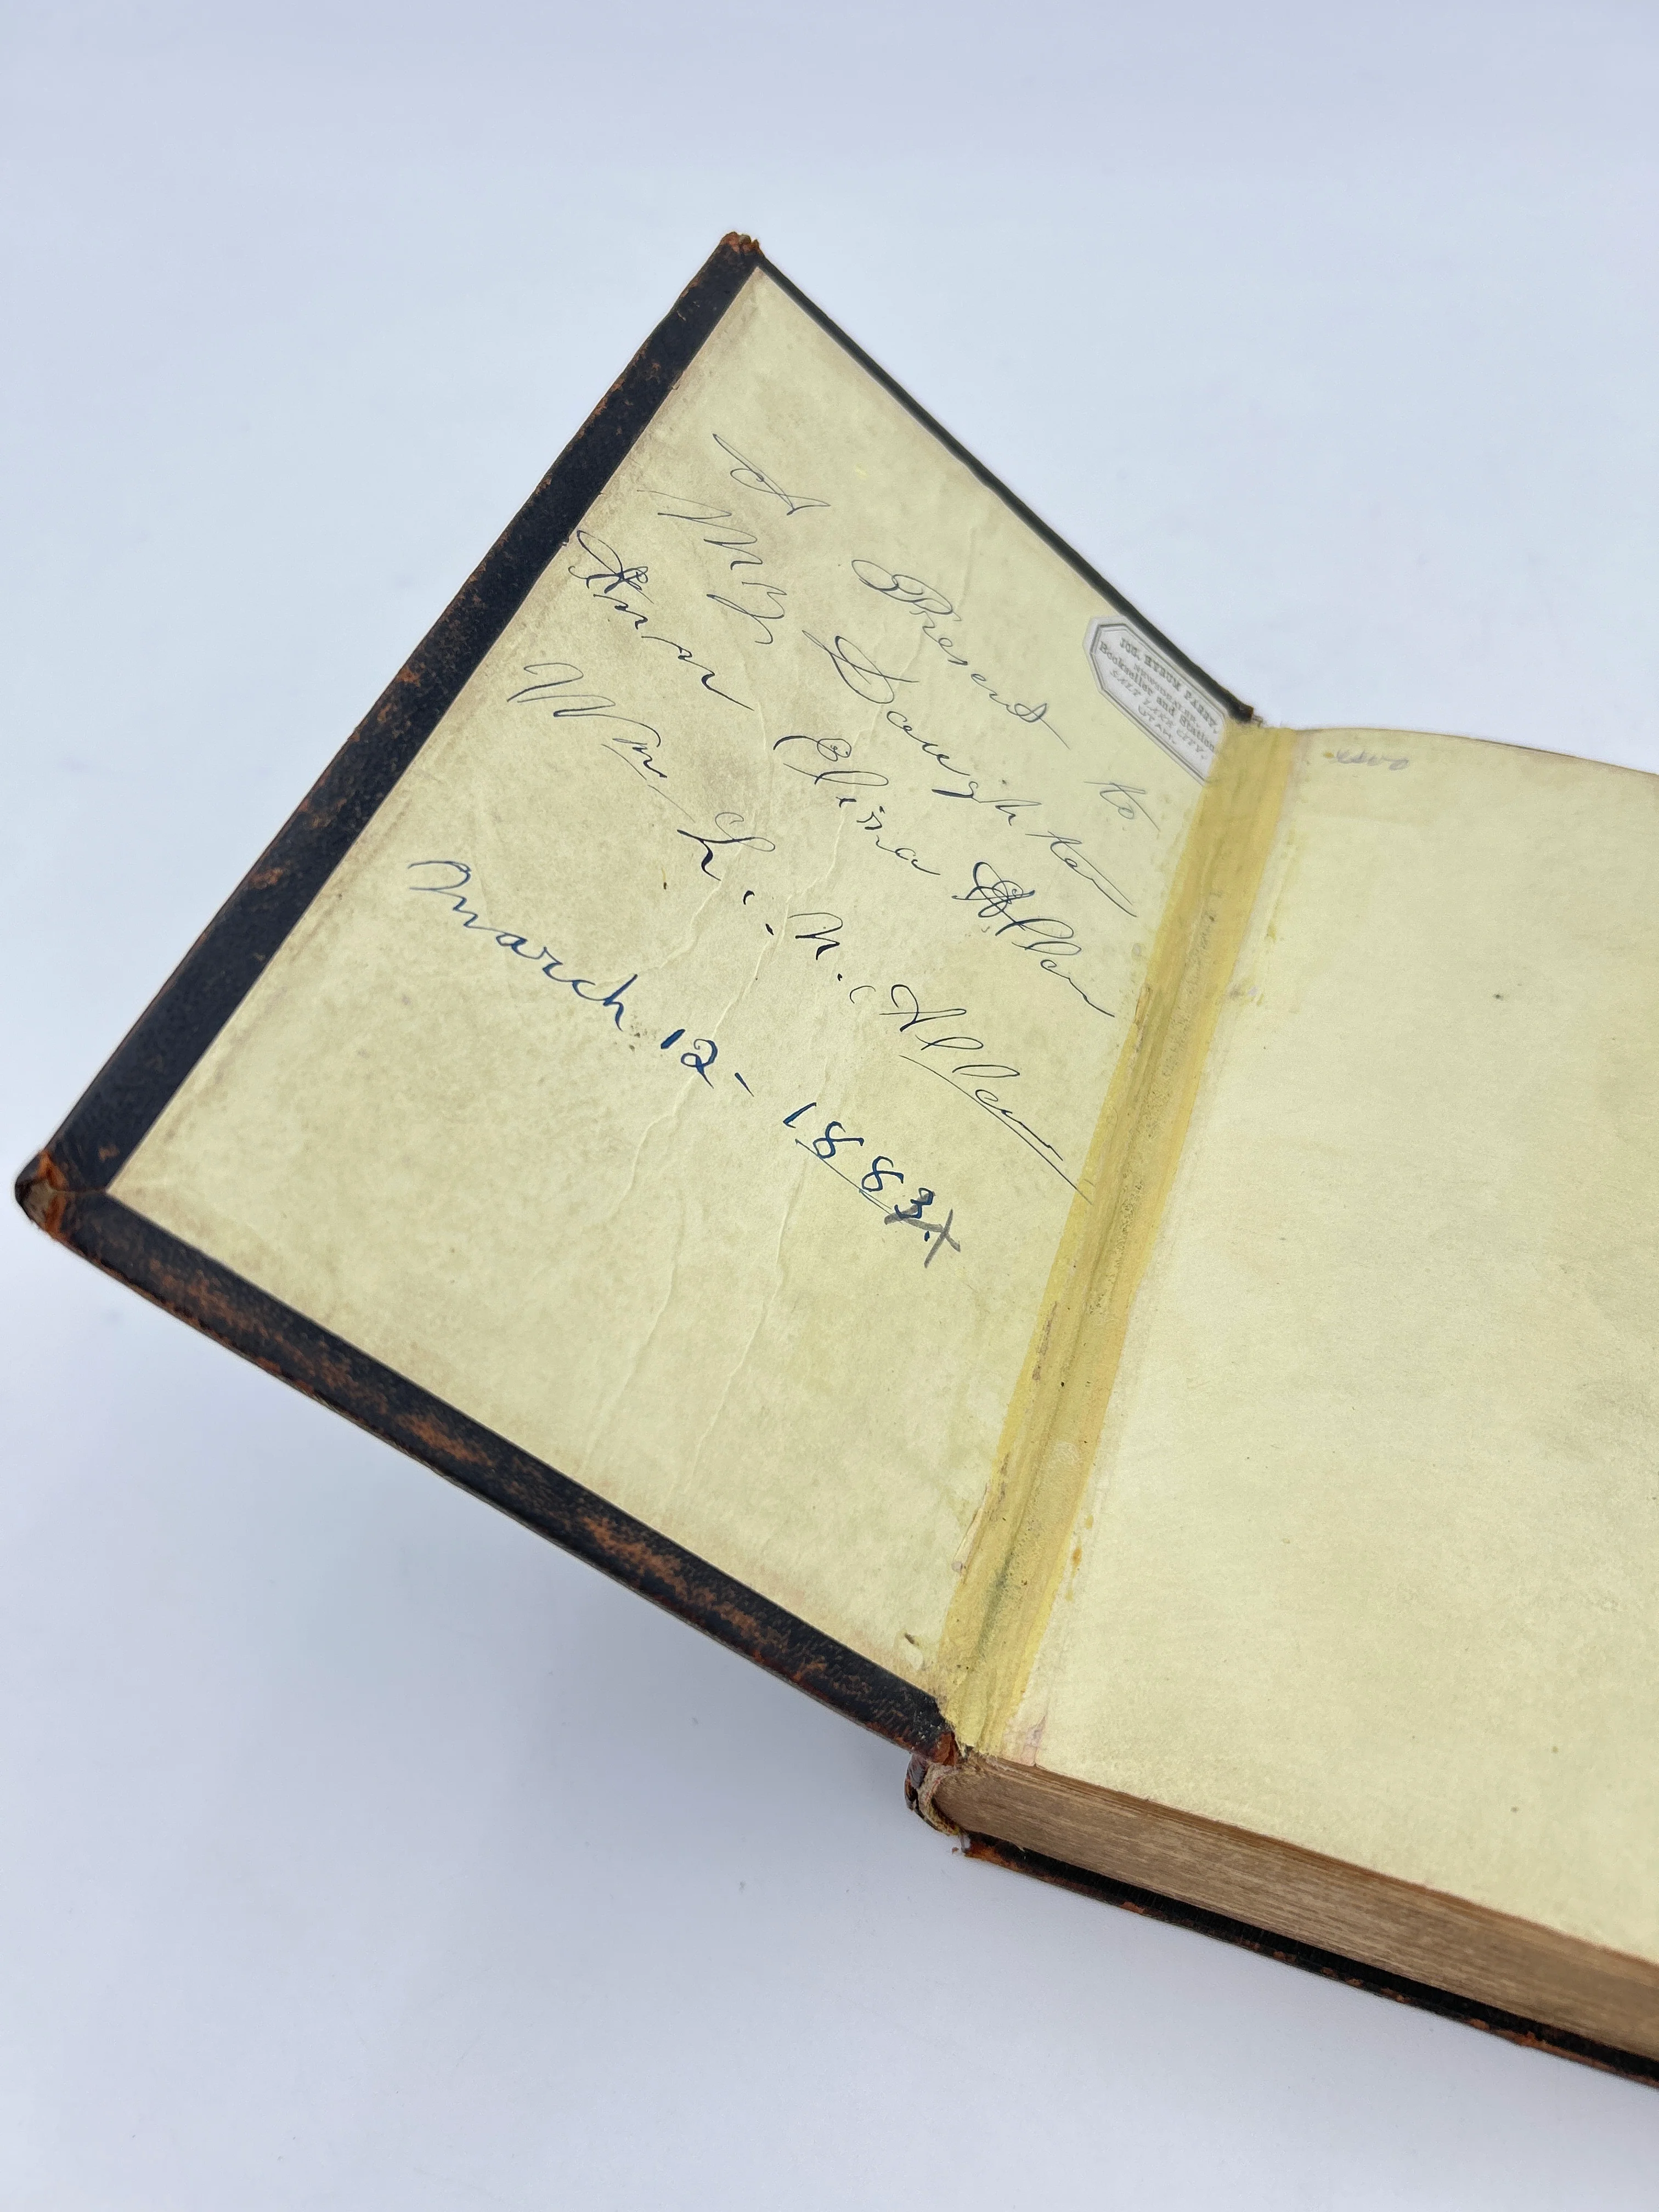 A Present to.
My Daughter
Ann Elisa Allen
Wm L. N. Allen
March 12- 1883.
JOS. HYRUM PARRY,
Bookseller and Station
SALT LAKE CITY,
UTAH.